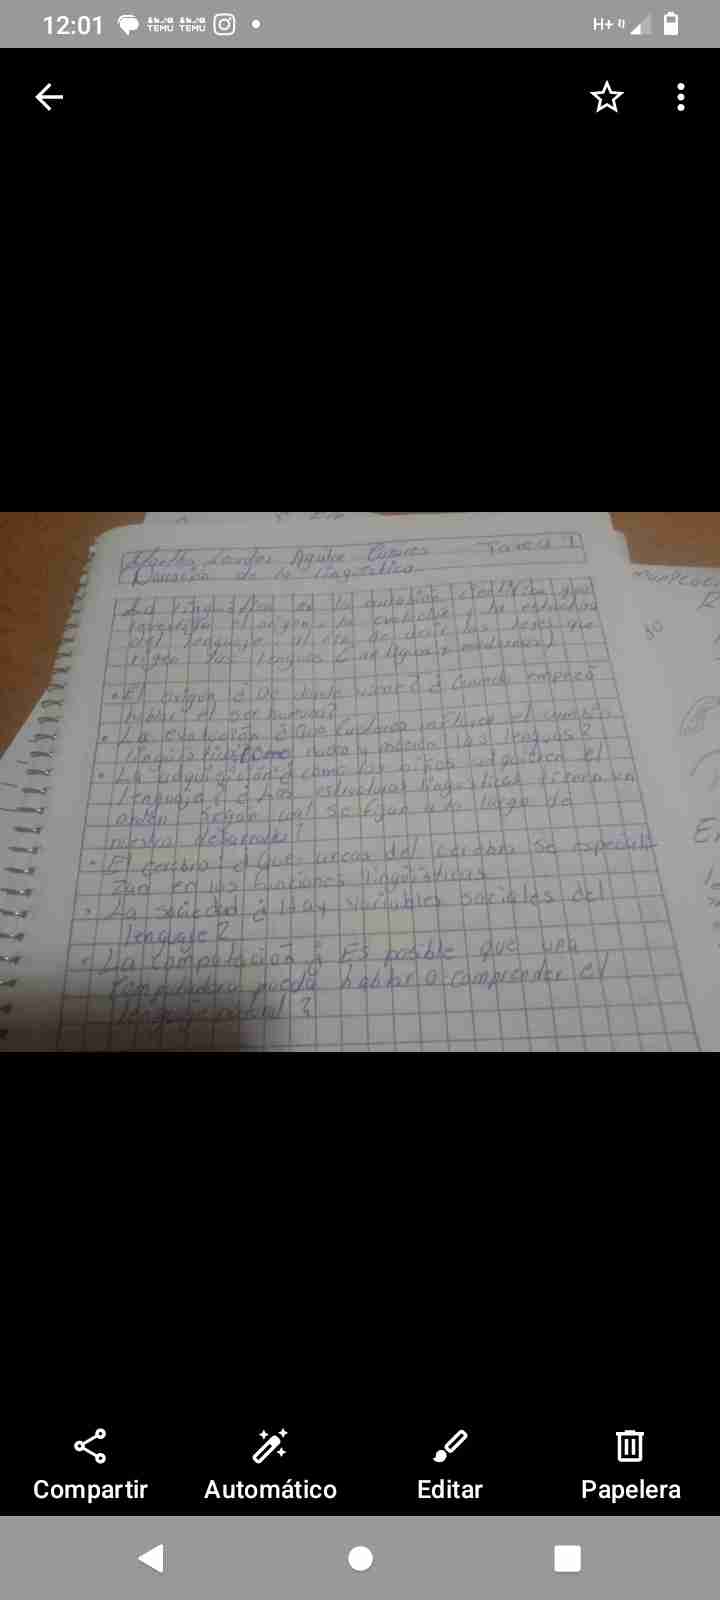 12:01
TEMU TEMU
H+
Aguilar Tarea 1
División de la lingüística
La lingüística es la que
investiga el origen, la evolución y la estructura
del lenguaje, al fin de las leyes que
rigen las lenguas (antiguas y modernas)
• El origen ¿De donde viene? ¿Cuando empezó
hablar el ser humano?
• La evolución ¿Que influye el cambio
lingüístico como nacen y mueren las lenguas?
• La adquisición ¿como los niños adquieren el
lenguaje? ¿Las estructuras lingüísticas tienen un
orden según cual se fijan a lo largo de
nuestro desarrollo?
• El cerebro ¿Que areas del cerebro se especiali
zan en las funciones lingüísticas
• La sociedad ¿Hay variables sociales del
lenguaje?
• La computación ¿Es posible que una
computadora pueda hablar o comprender el
lenguaje natural?
Compartir
Automático
Editar
Papelera